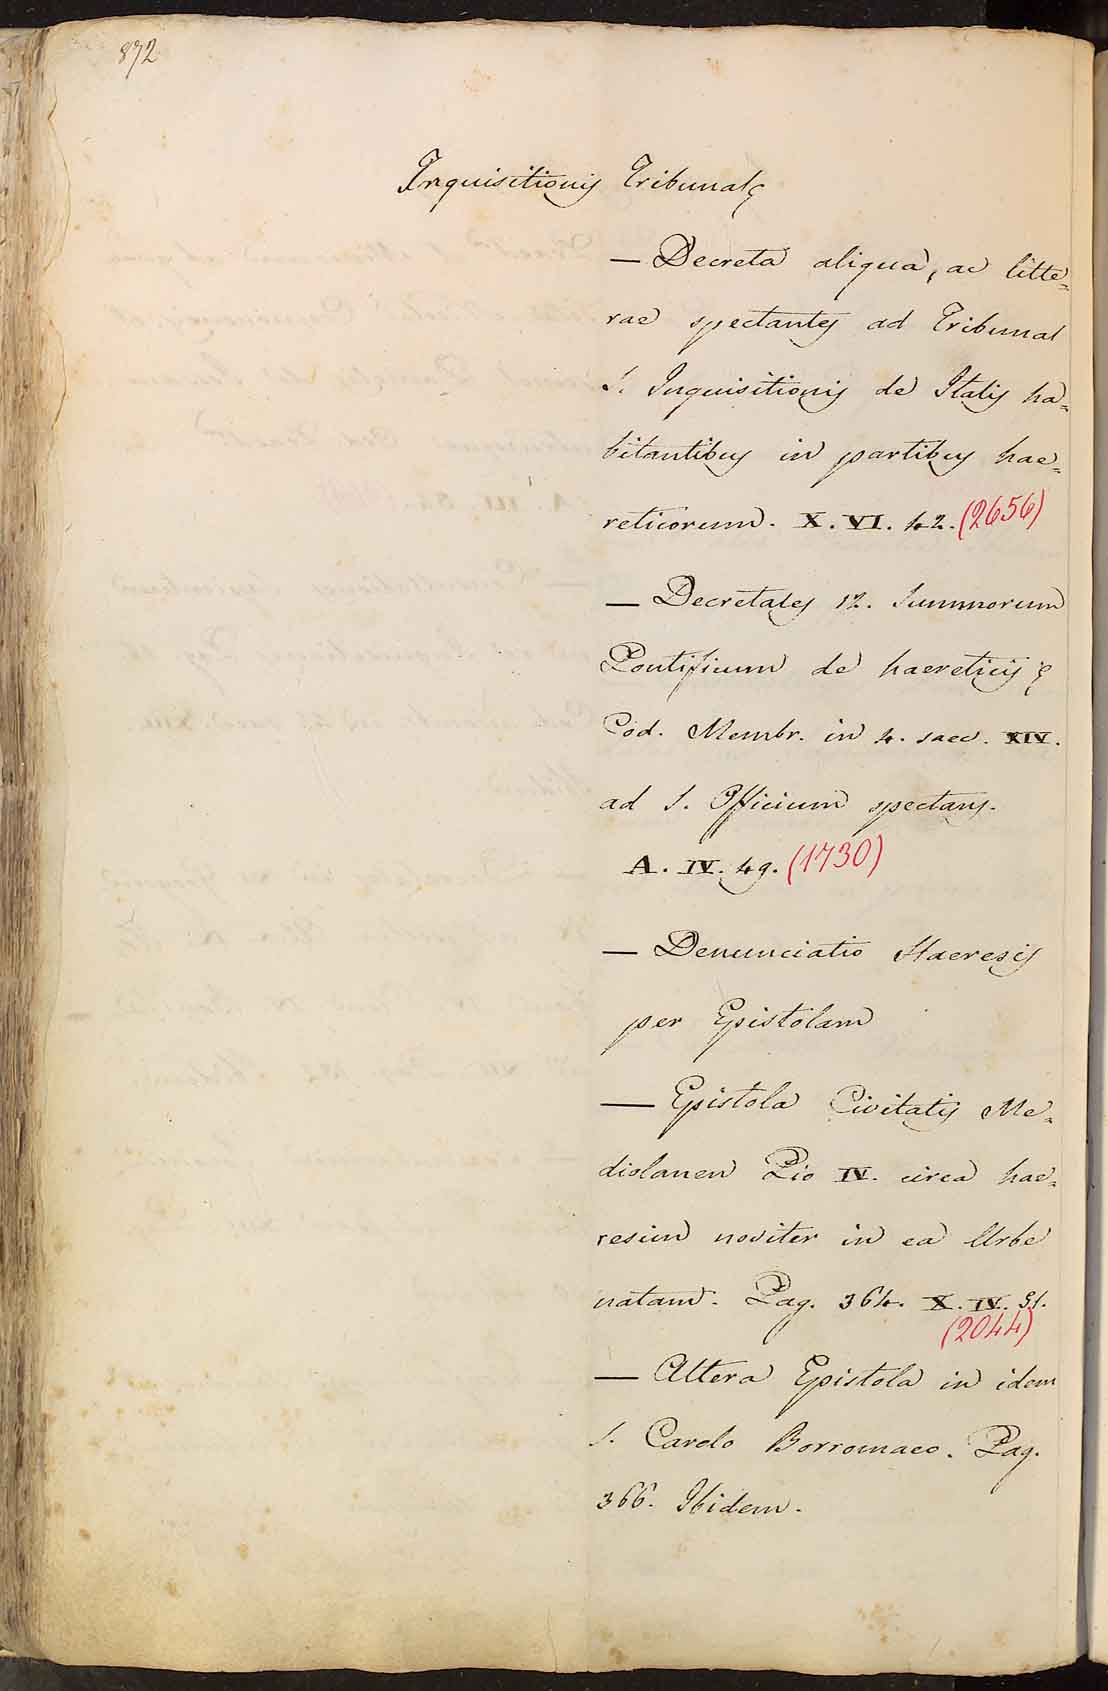 872
Inquisitionis Tribunal &
— Decreta aliqua, ac litte=
rae spectantes ad Tribunal
S. Inquisitionis de Italis ha=
bitantibus in partibus hae=
reticorum. X. VI. 42. (2656)
— Decretales 12. Summorum
Pontificum de haereticis &
Cod. Membr. in 4. saec. XIV.
ad S. Officium spectans.
A. IV. 49. (1730)
— Denunciatio Haeresis
per Epistolam
— Epistola Civitatis Me=
diolanen Pio IV. circa hae=
resim noviter in ea Urbe
natam. Pag. 364. X. IV. 31.
(2044)
— Altera Epistola in idem
S. Carolo Borromaeo. Pag.
366. Ibidem.